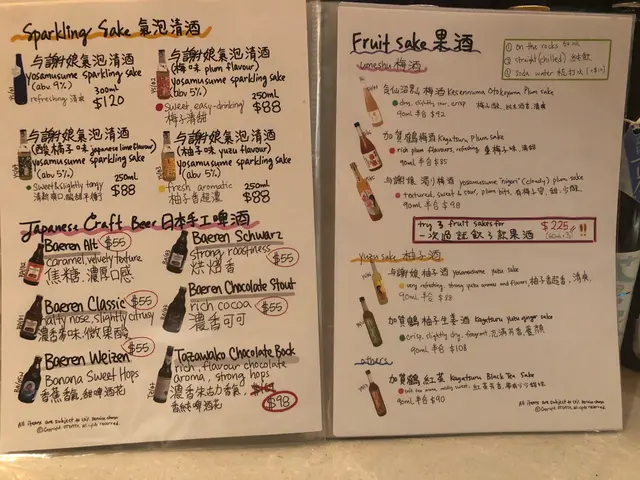 Sparkling Sake 氣泡清酒
与謝娘氣泡清酒
yosamusume sparkling sake
(abv 9%)
refreshing 清爽
300ml
$120
与謝娘氣泡清酒
(梅子味 plum flavour)
yosamusume sparkling sake
(abv 5%)
sweet, easy-drinking/
梅子清甜
250ml
$88
与謝娘氣泡清酒
(酸橘子味 japanese lime flavour)
yosamusume sparkling sake
(abv 5%)
sweet & slightly tangy
清新爽口,酸甜平衡
250ml
$88
与謝娘氣泡清酒
(柚子味 yuzu flavour)
yosamusume sparkling sake
(abv 5%)
fresh aromatic
柚子香超濃
250ml
$88
Japanese Craft Beer 日本手工啤酒
Baeren Alt $55
caramel, velvety texture
焦糖,濃厚口感
Baeren Schwarz
strong roastiness
烘焙香
$55
Baeren Classic $55
malty nose, slightly citrusy
濃香麥味,微果酸
Baeren Chocolate Stout
rich cocoa
濃香可可
$55
Baeren Weizen $55
Banana Sweet Hops
香蕉香氣,甜啤酒花
Tazawako Chocolate Bock
rich, flavour chocolate
aroma, strong hops
濃香朱古力香氣,
香純啤酒花
$98
All items are subject to 10% service charge
Fruit Sake 果酒
① on the rocks 加冰
② straight (chilled) 純飲
③ soda water 梳打水
umeshu 梅酒
気仙沼男山梅酒 Kesennuma Otokoyama Plum sake
dry, slightly sour, crisp
90ml 半合 $92
加賀鶴梅酒 Kagatsuru Plum sake
rich plum flavours, refreshing 重梅子味,清甜
90ml 半合 $85
与謝娘 濁り梅酒 yosamusume "nigori" (cloudy) plum sake
textured, sweet & sour, plum bits,
90ml 半合 $98
try 3 fruit sakes for
一次過試飲3款果酒
$225
yuzu sake 柚子酒
与謝娘柚子酒 yosamusume yuzu sake
very refreshing, strong yuzu aroma and flavour, 柚子香超香,清爽
90ml 半合 $88
加賀鶴柚子生姜酒 Kagatsuru yuzu ginger sake
crisp, slightly dry, fragrant, 充滿芳香,薑頗
90ml 半合 $108
others
加賀鶴紅茶 Kagatsuru Black Tea Sake
90ml 半合 $90
All items are subject to 10% service charge